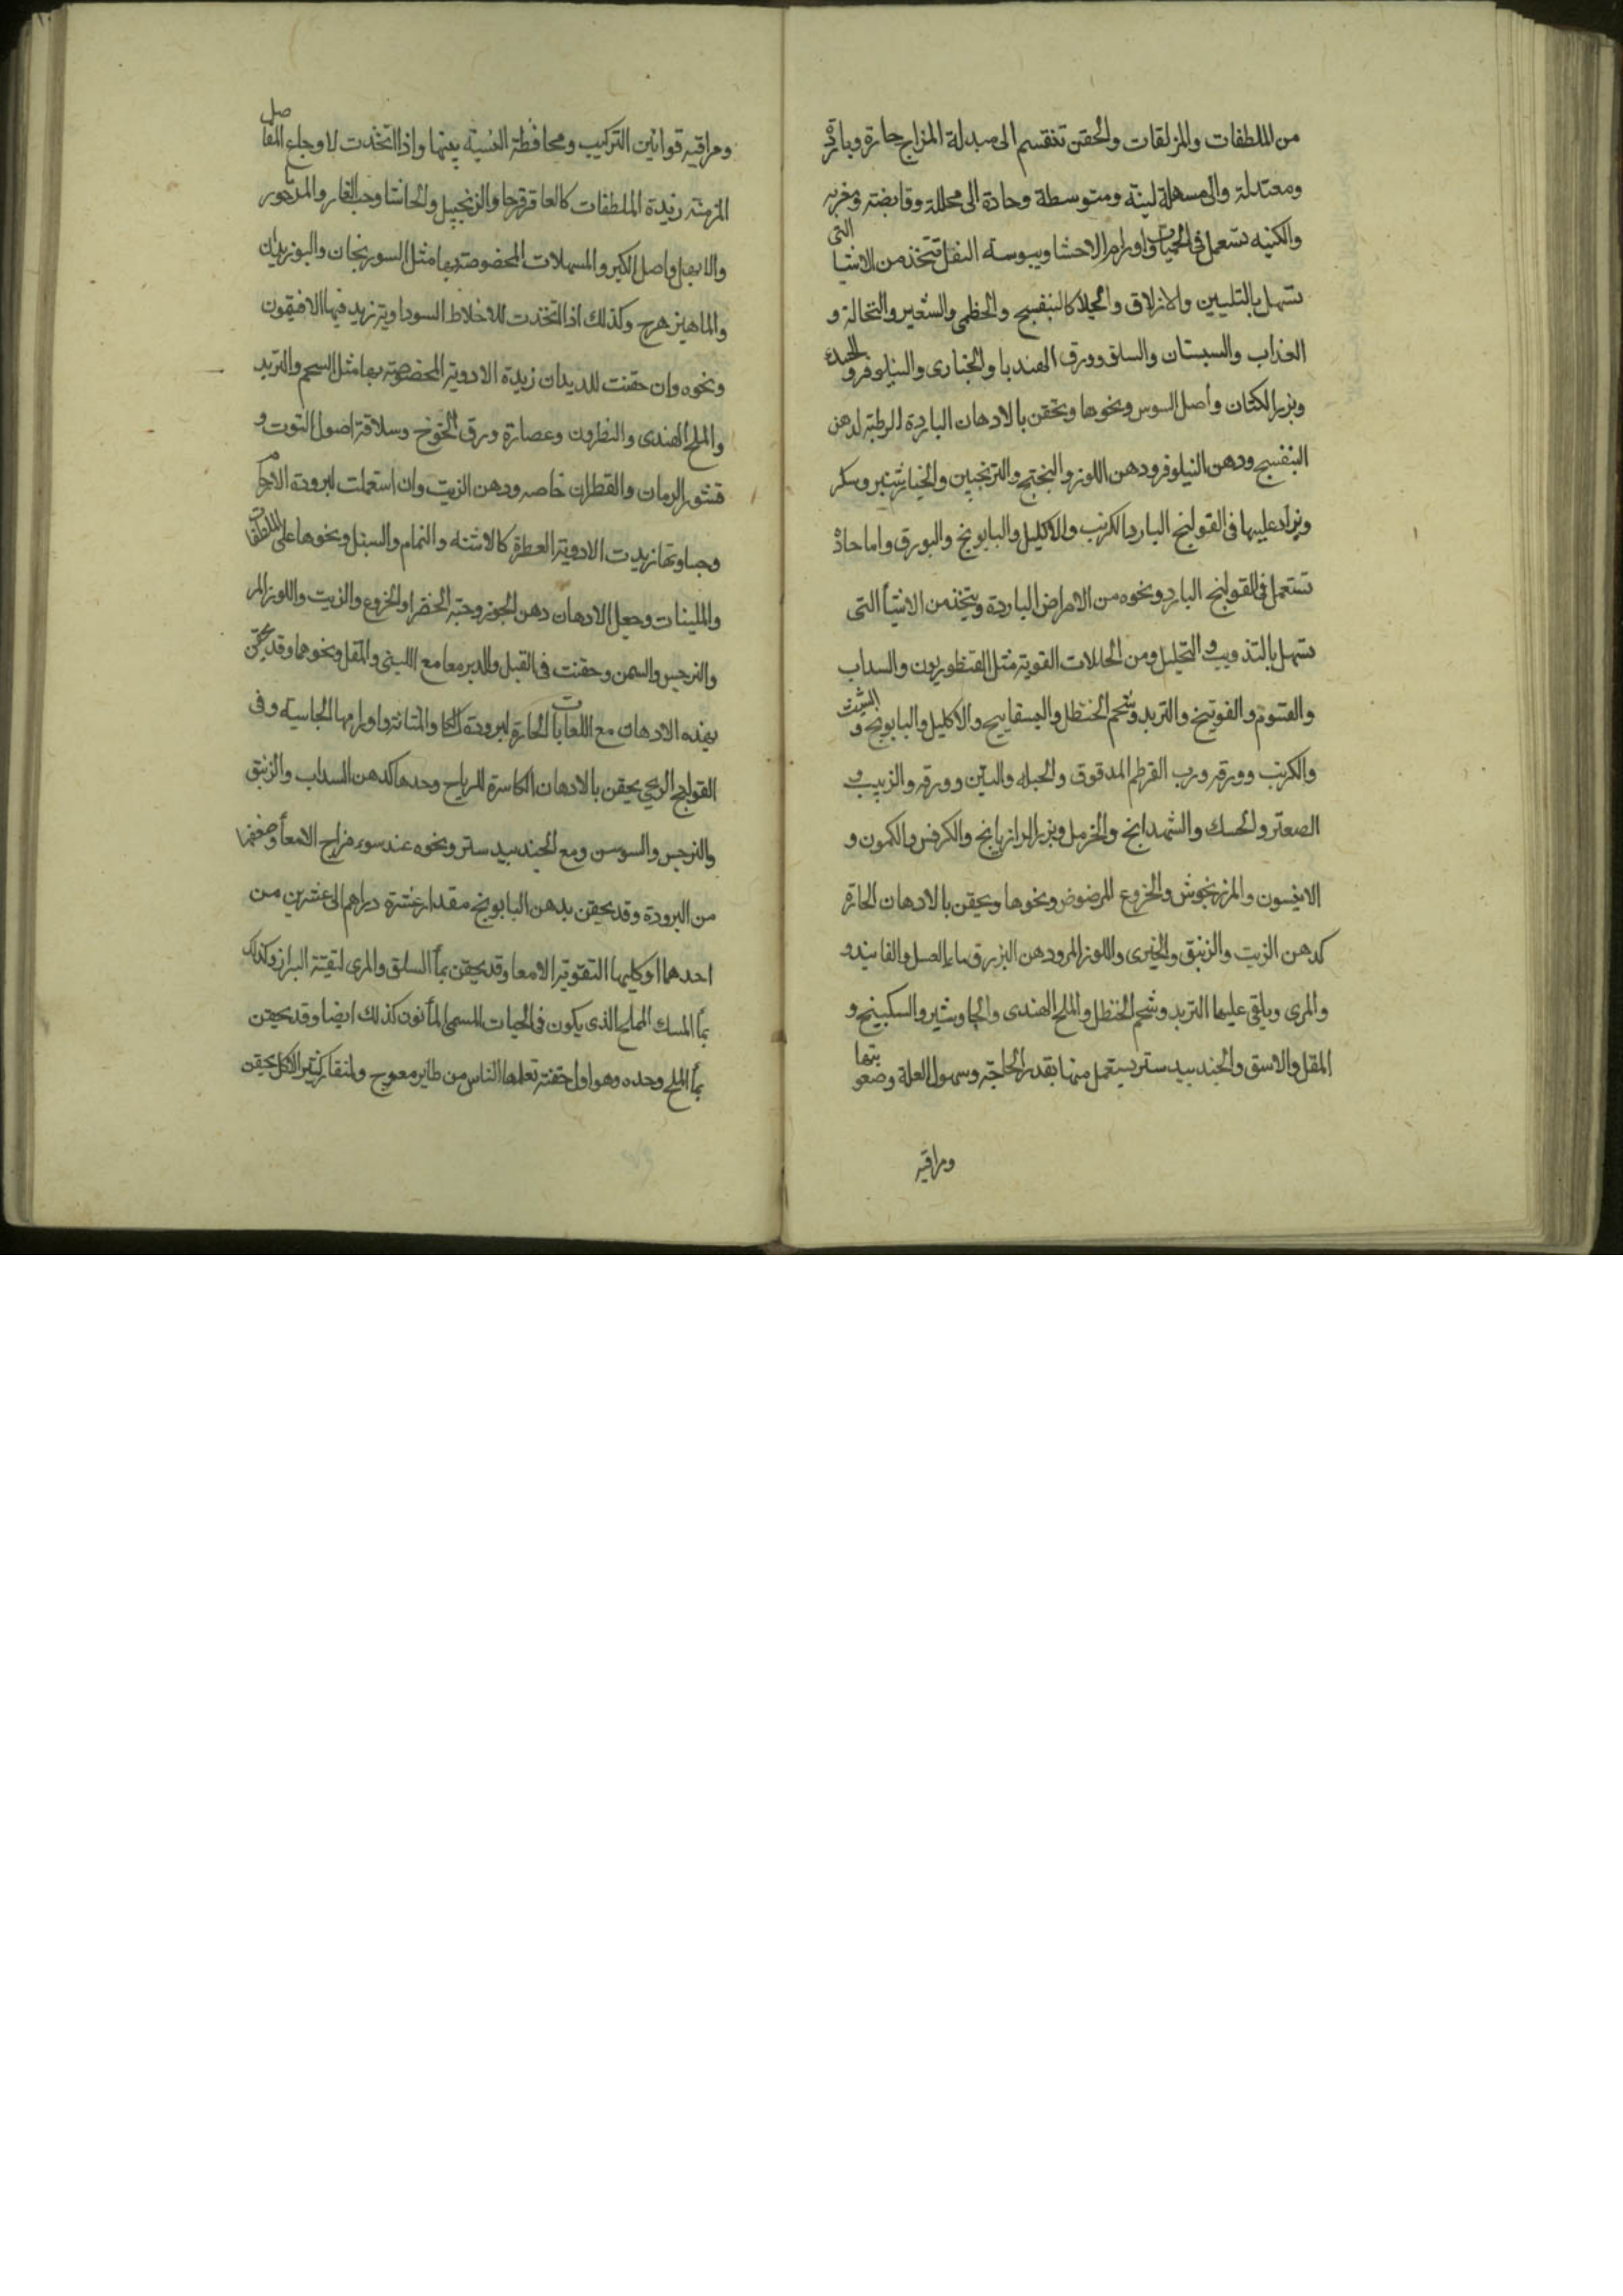 من الملطفات والمزلقات والحقن تنقسم الى مبدلة المزاج حارة وباردة
ومعتدلة والى مسهلة لينة ومتوسطة وحادة الى محللة وقابضة ومغريه
والكنيه تستعمل فى الحميات واورام الاحشا ويبوسة الثفل تتخذ من الاشيا التى
تسهل بالتليين والازلاق والجلا كالبنفسج والخطمى والشعير والنخالة و
العناب والسبستان والسلق وورق الهندبا والخبازى والنيلوفر و
وبزر الكتان وأصل السوس ونحوها وتحقن بالادهان الباردة الرطبة لدهن
البنفسج ودهن النيلوفر ودهن اللوز والبختج والترنجبين والخيارشنبر وسكر
ويزاد عليها فى القولنج البارد الكرنب والاكليل والبابونج والبورق واما حادة
تستعمل فى القولنج البارد ونحوه من الامراض الباردة ويتخذ من الاشيأ التى
تسهل بالتذويب والتحليل ومن الحاللات القوية مثل القنطوريون والسداب
والقسوم والفوتنج والتربد وشحم الحنظل والبسفايج والاكليل والبابونج والشبث و
والكرنب وورقه ورب القرطم المدقوق والحبله والتين وورقه والزبيب و
الصعتر والحسك والشهدانج والخرمل وبزر الرازيانج والكرفس والكمون و
الانيسون والمرزنجوش والخروع المرضوض ونحوها ويحقن بالادهان الحارة
كدهن الزيت والزنبق والخيرى واللوز المر ودهن البزر ق ماء العسل والفانيد و
والمرى ويلقى عليها التربد وشحم الحنظل والملح الهندى والجاوشير والسكبينج و
المقل والاسق والجندبيدستر يستعمل منها بقدر الحاجة وسهول العلة وصعوبتها
ومراقيه
ومراقيه قوانين التركيب ومحافظة النسبة بينها واذا اتخذت لاوجاع المفاصل
المزمنه زيدة الملطفات كالعاقرقرحا والزنجبيل والحاشا وحب الغار والمذكور
والابهل واصل الكبر والمسهلات المخصوصة بها مثل السورنجان والبوزيدان
والماهيزهرج وكذلك اذا اتخذت للاخلاط السوداوية زيد فيها الافيمون
ونحوه وان حقنت للديدان زيدة الادوية المخصوصة بها مثل السحم والتربد
والملح الهندى والنطرون وعصارة ورق الخوخ وسلاقة اصول التوت و
قشور الرمان والقطران خاصه ودهن الزيت وان استعملت لبرودة الارحام
وجساوتها زيدت الادوية العطرة كالاشنه والنمام والسنبل ونحوها على الملطفات
والملينات وجعل الادهان دهن الجوز وحبة الخضرا والخروع والزيت واللوز المر
والنرجس والسمن وحقنت فى القبل والدبر معا مع اللبنى والمقل ونحوها وقد يحقن
بهذه الادهان مع اللعابات الحارة لبرودة الكلا والمثانة واورامها الجاسية وفى
القولنج الريحى يحقن بالادهان الكاسرة للرياح وحدها كدهن السداب والزنبق
والنرجس والسوسن ومع الجندبيدستر ونحوه عند سوء مزاج الامعأ وضعفها
من البرودة وقد يحقن بدهن البابونج مقدار عشرة دراهم الى عشرين من
احدهما اوكليهما التقوتية الامعا وقد يحقن بمأ السلق والمرى لتقية البراز وكذلك
بمأ السمك المملح الذى يكون فى الجبات المسمى المأنون كذلك ايضا وقد يحقن
بمأ الملح وحده وهو اول حقنة تعلمها الناس من طاير معوج والمنقار كثير الاكل يحقن